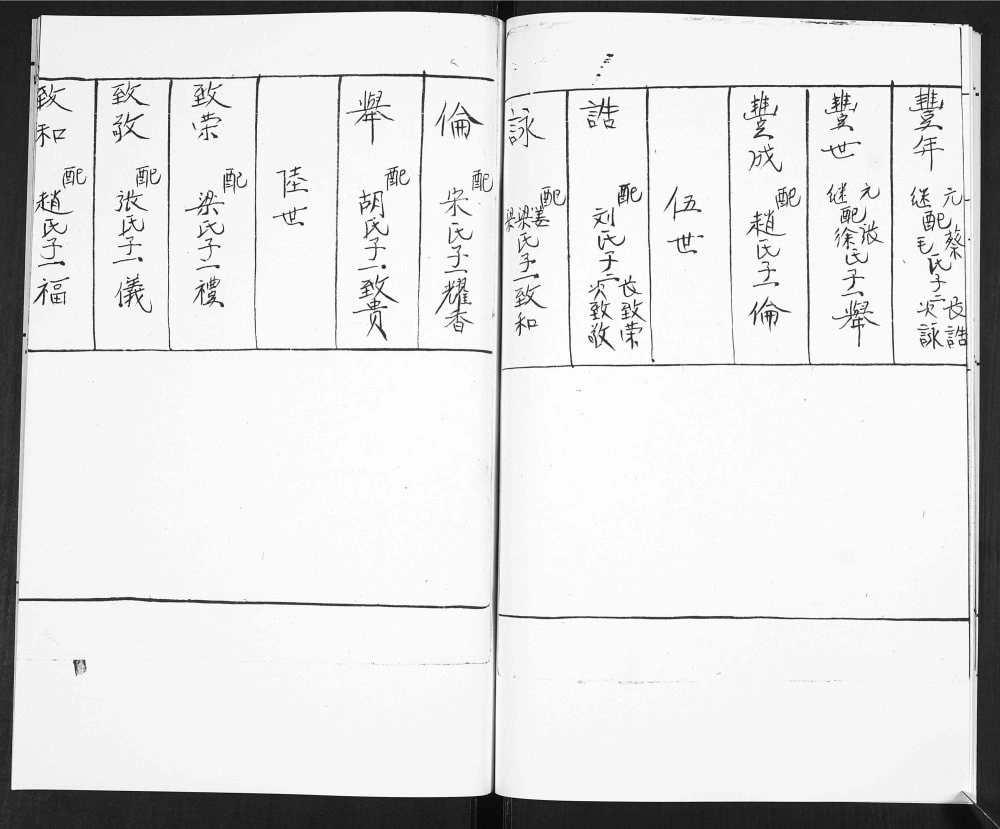 豐年 元蔡 继配毛氏子二 长誥 次詠
豐世 元張 继配徐氏子一舉
豐成 配趙氏子一倫
伍世
誥 配刘氏子二 长致荣 次致敬
詠 配姜梁梁氏子一致和
倫 配宋氏子一耀香
舉 配胡氏子一致貴
陸世
致荣 配梁氏子一禮
致敬 配張氏子一儀
致和 配趙氏子一福